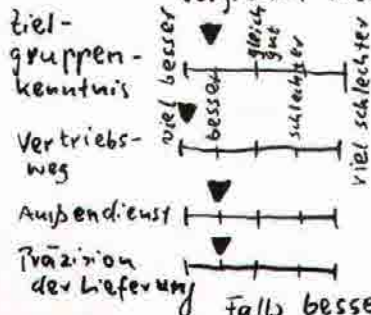 Ziel-
gruppen-
kenntnis
viel besser
besser
gleich
gut
schlechter
viel schlechter
Vertriebs-
weg
Außendienst
Präzision
der Lieferung
Falls besse